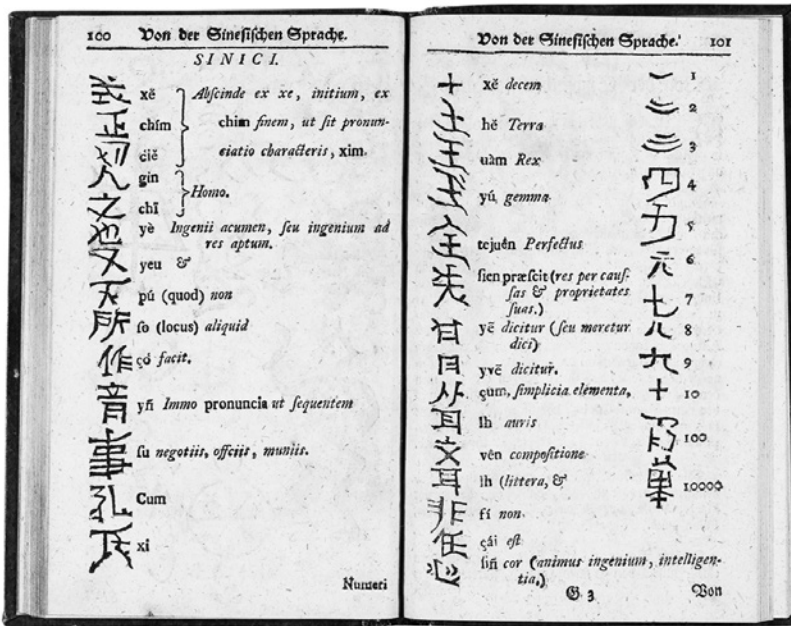 100 Von der Sinesischen Sprache.
SINICI.
xĕ Abſcinde ex xe, initium, ex
正 chím chim finem, ut ſit pronun-
切 çiĕ ciatio characteris, xim.
人 gin
Homo.
之 chī
也 yè Ingenii acumen, ſeu ingenium ad
res aptum.
又 yeu &
不 pú (quod) non
所 ſo (locus) aliquid
作 çó facit.
音 yñ Immo pronuncia ut ſequentem
事 ſu negotiis, offciis, muniis.
孔 Cum
氏 xi
Numeri
Von der Sinesischen Sprache. 101
十 xĕ decem
hĕ Terra
王 uàm Rex
yú gemma
tçjuên Perfectus
先 ſien præſcit (res per cauſ-
ſas & proprietates
ſuas.)
yĕ dicitur (ſeu meretur
dici)
yvĕ dicitur.
çum, ſimplicia elementa,
耳 lh auris
文 vên compoſitione
耳 lh (littera, &
非 fi non
çái eſt
心 ſiñ cor (animus ingenium, intelligen-
tia.)
一 1
二 2
三 3
四 4
五 5
六 6
七 7
八 8
九 9
十 10
百 100
10000
G. 3 Von